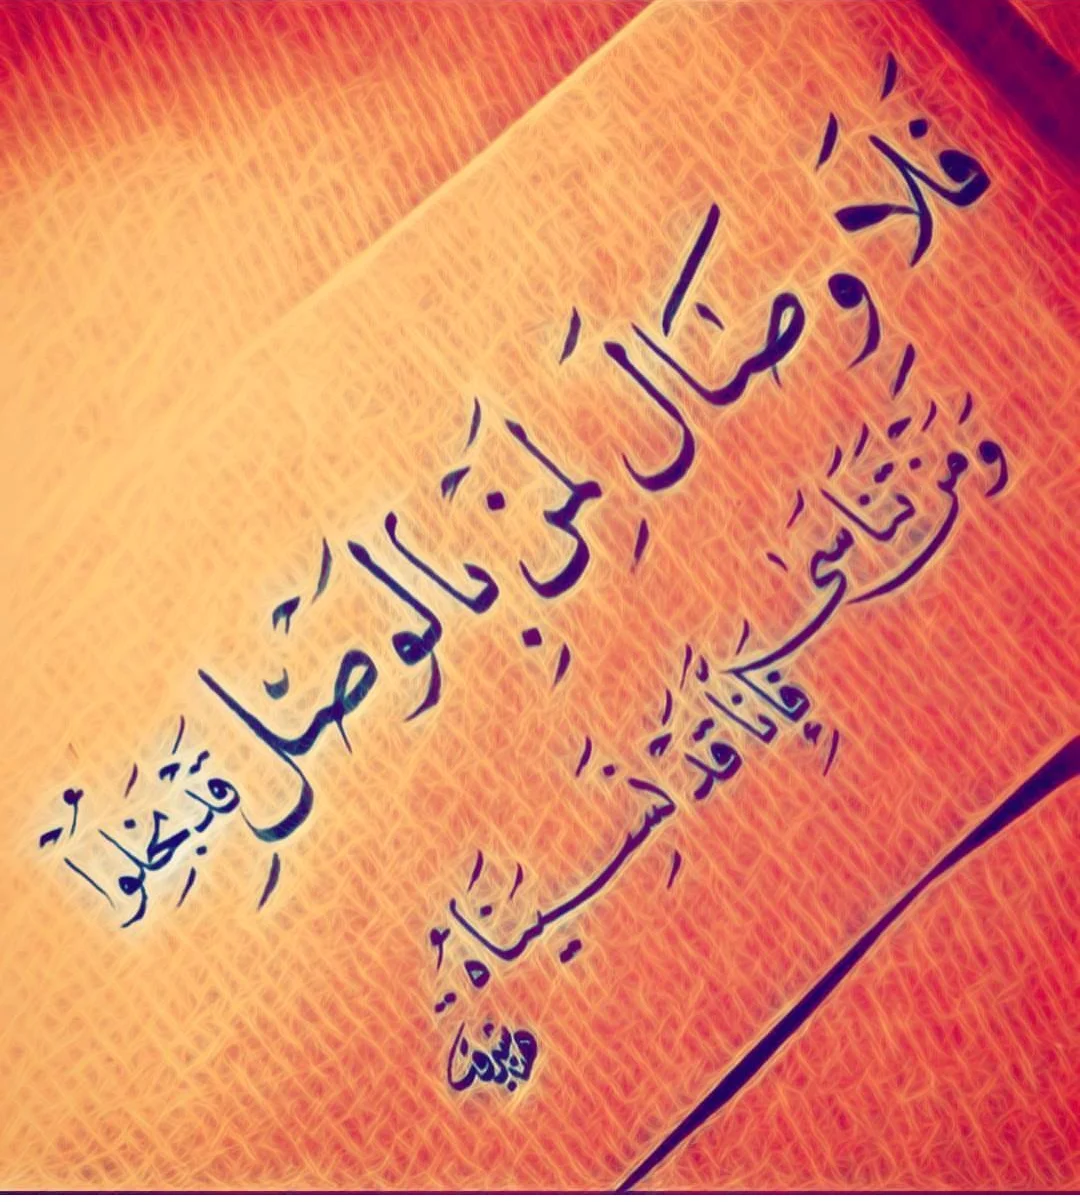 فَلَا وِصَال لِمَنْ بَالوَصْلِ قَدْ بَخِلُواْ
وَمَنْ تَنَاسَى فَإِنَا قَدْ نَسِينَاهُ